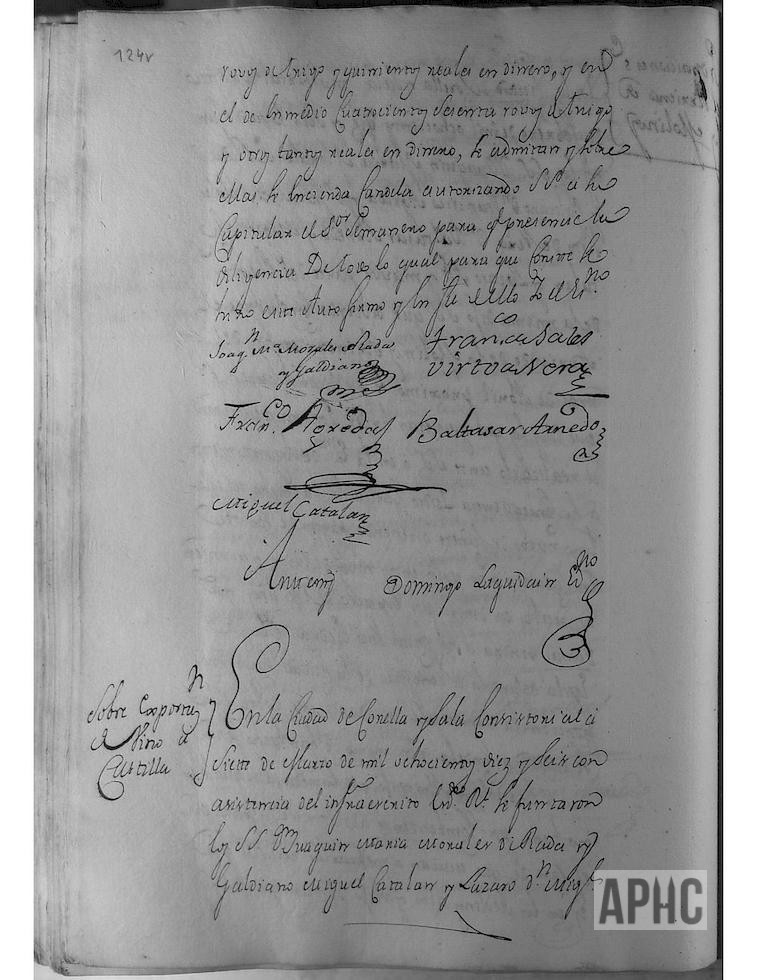 124v
rovos de trigo y quinientos reales en dinero, y en
el de inmedio Cuatrocientos sesenta rovos de trigo
y otros tantos reales en dinero, se admitan y sobre
ellas se encienda Candela autorizando SSª a he
Capitular el Sor Semanero para q presencie la
diligencia De todo lo qual para que Conste se
hizo este Auto firmo y en fee de ello Yo el Esno
Joaqn Ma Morales Rada
y Galdiano
Franco de Sales
Virto de Vera
Franco Agreda
Baltasar Arnedo
Miguel Catalan
Antemi Domingo Laquidain Esno
Sobre Exportn
de Vino a
Castilla
En la Ciudad de Corella y Sala Consistorial a
Siette de Marzo de mil ochocientos diez y seis con
asistencia del infraescrito Esno Rl. se juntaron
los SS. Dn Juaquin Maria Morales de Rada y
Galdiano Miguel Catalan y Lazaro dn Migl
APHC